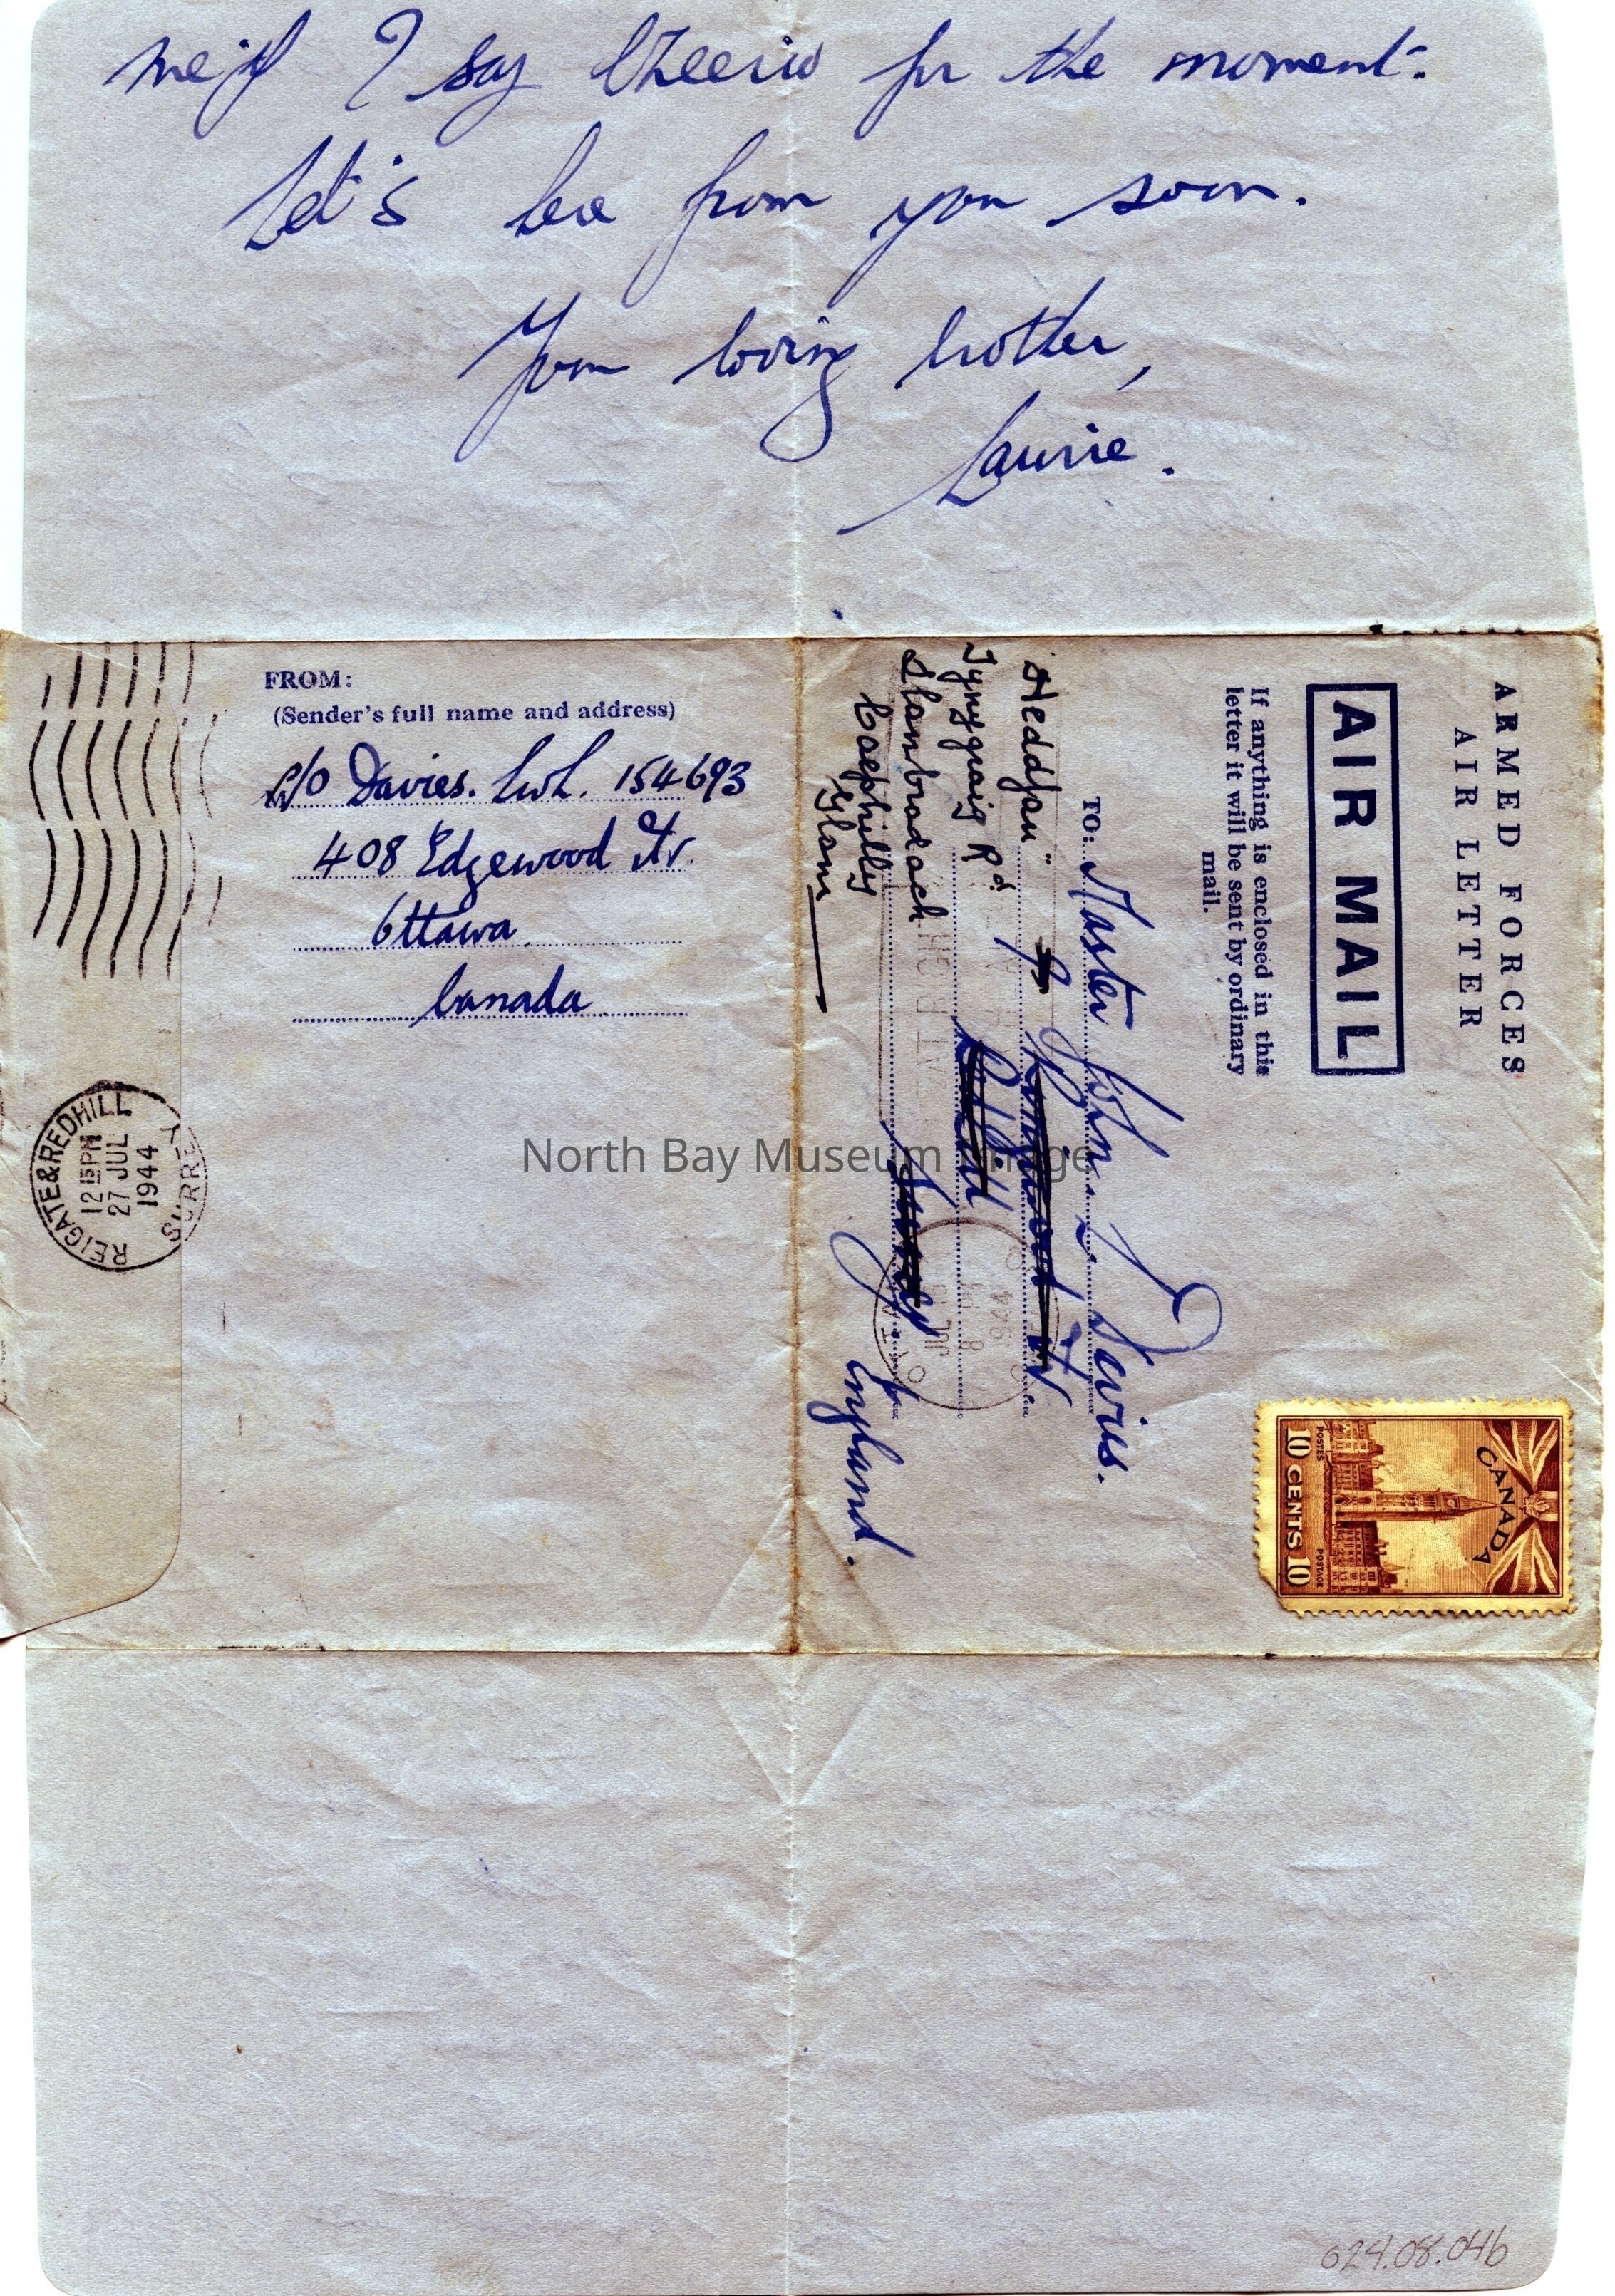 me if I say Cheerio for the moment.
Let's hear from you soon.
Your loving brother,
Laurie.
FROM:
(Sender's full name and address)
P/O Davies. L.W.L. 154693
408 Edgewood Av.
Ottawa
Canada
REIGATE & REDHILL
SURREY
12 15 PM
27 JUL
1944
ARMED FORCES
AIR LETTER
AIR MAIL
If anything is enclosed in this
letter it will be sent by ordinary
mail.
TO: Master John L. Davies.
9
Surrey
England.
"Heddfan"
Tynygraig Rd.
Llanbradach
Caephilly
Glam
CANADA
POSTES POSTAGE
10 CENTS 10
North Bay Museum Image
624.08.04b